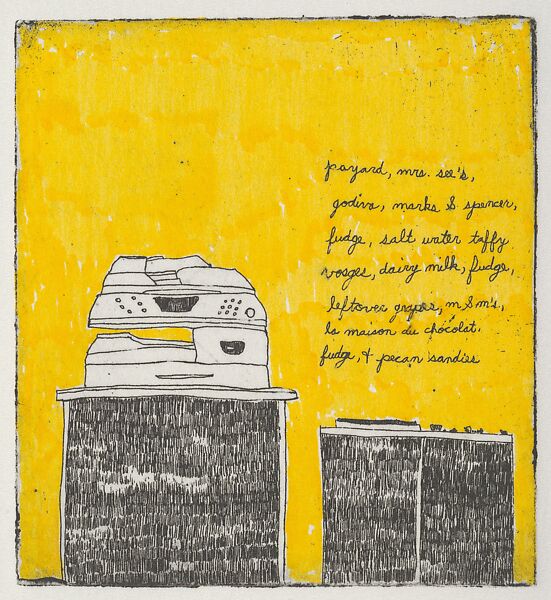 payard, mrs. see's,
godiva, marks & spencer,
fudge, salt water taffy
vosges, dairy milk, fudge,
leftover grapes, m & m's,
la maison du chocolat.
fudge, & pecan sandies